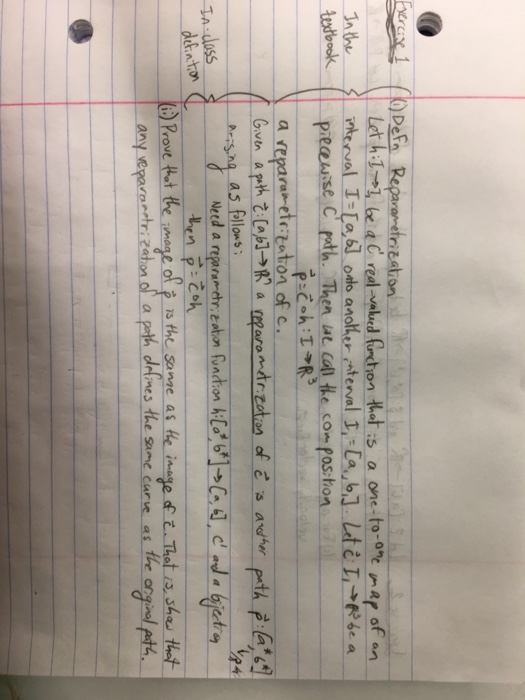 Exercise 1 (i) Defn Reparametrization
In the textbook
Let h: I → I₁ be a C' real-valued function that is a one-to-one map of an
interval I = [a,b] onto another interval I₁ = [a₁, b₁]. Let c⃗: I₁ → R³ be a
piecewise C' path. Then we call the composition
p⃗ = c⃗ ∘ h : I → R³
a reparametrization of c.
In-class definition
Given a path c⃗: [a,b] → Rⁿ a reparametrization of c⃗ is another path p⃗: [a*, b*]
arising as follows:
Need a reparametrization function h: [a*, b*] → [a, b], C' and a bijection
then p⃗ = c⃗ ∘ h
(ii) Prove that the image of p⃗ is the same as the image of c⃗. That is, show that
any reparametrization of a path defines the same curve as the original path.